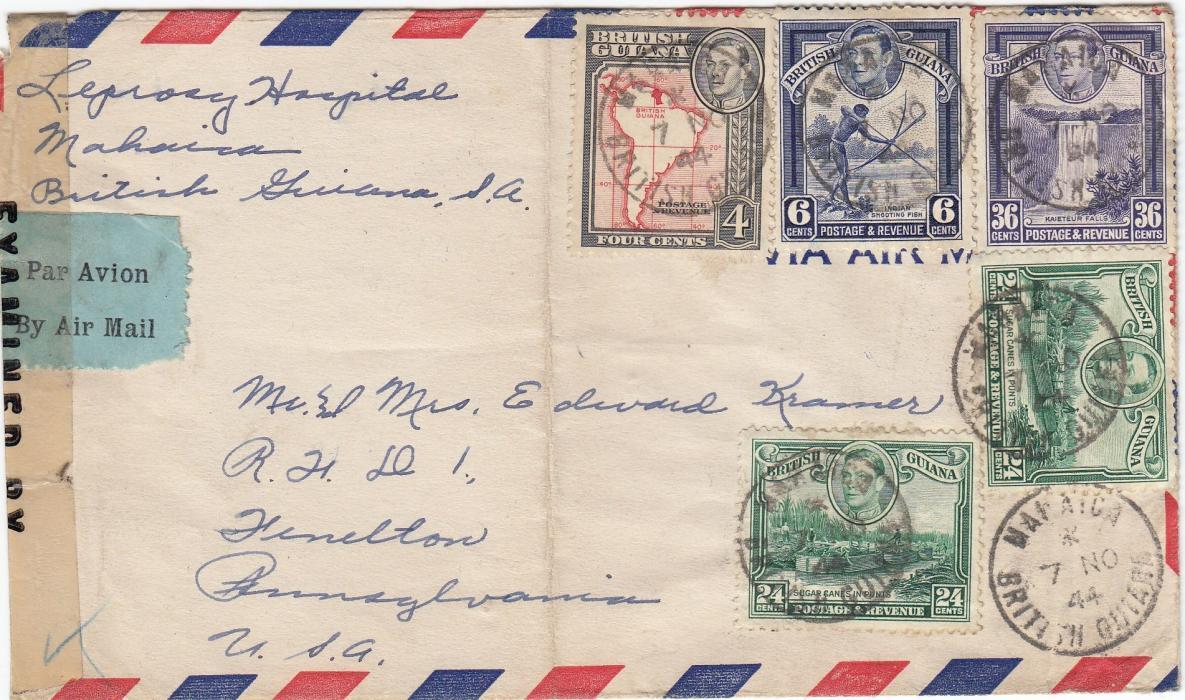 Leprosy Hospital
Mahaica
British Guiana, S.A.
Par Avion
By Air Mail
EXAMINED BY
BRITISH GUIANA
BRITISH GUIANA
POSTAGE & REVENUE
4
FOUR CENTS
BRITISH GUIANA
INDIAN SHOOTING FISH
6 CENTS POSTAGE & REVENUE 6 CENTS
BRITISH GUIANA
KAIETEUR FALLS
36 CENTS POSTAGE & REVENUE 36 CENTS
VIA AIR M
BRITISH GUIANA
SUGAR CANES IN PUNTS
24 CENTS POSTAGE & REVENUE 24 CENTS
Mr. & Mrs. Edward Kramer
R. F. D 1.,
Fenelton
Pennsylvania
U. S. A.
BRITISH GUIANA
SUGAR CANES IN PUNTS
24 CENTS POSTAGE & REVENUE 24 CENTS
MAHAICA
7 NO
44
BRITISH GUIANA